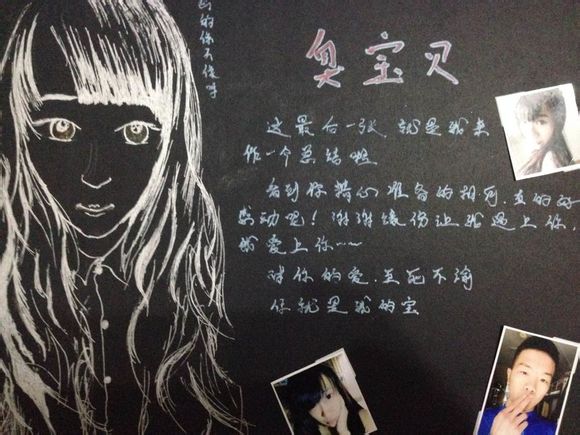 的你不像呀
臭宝贝
这最后一张 就是我来
作一个总结啦
看到你精心准备的相册.真的好
感动吧！谢谢缘份让我遇上你,
我爱上你~~
对你的爱.至死不渝
你就是我的宝